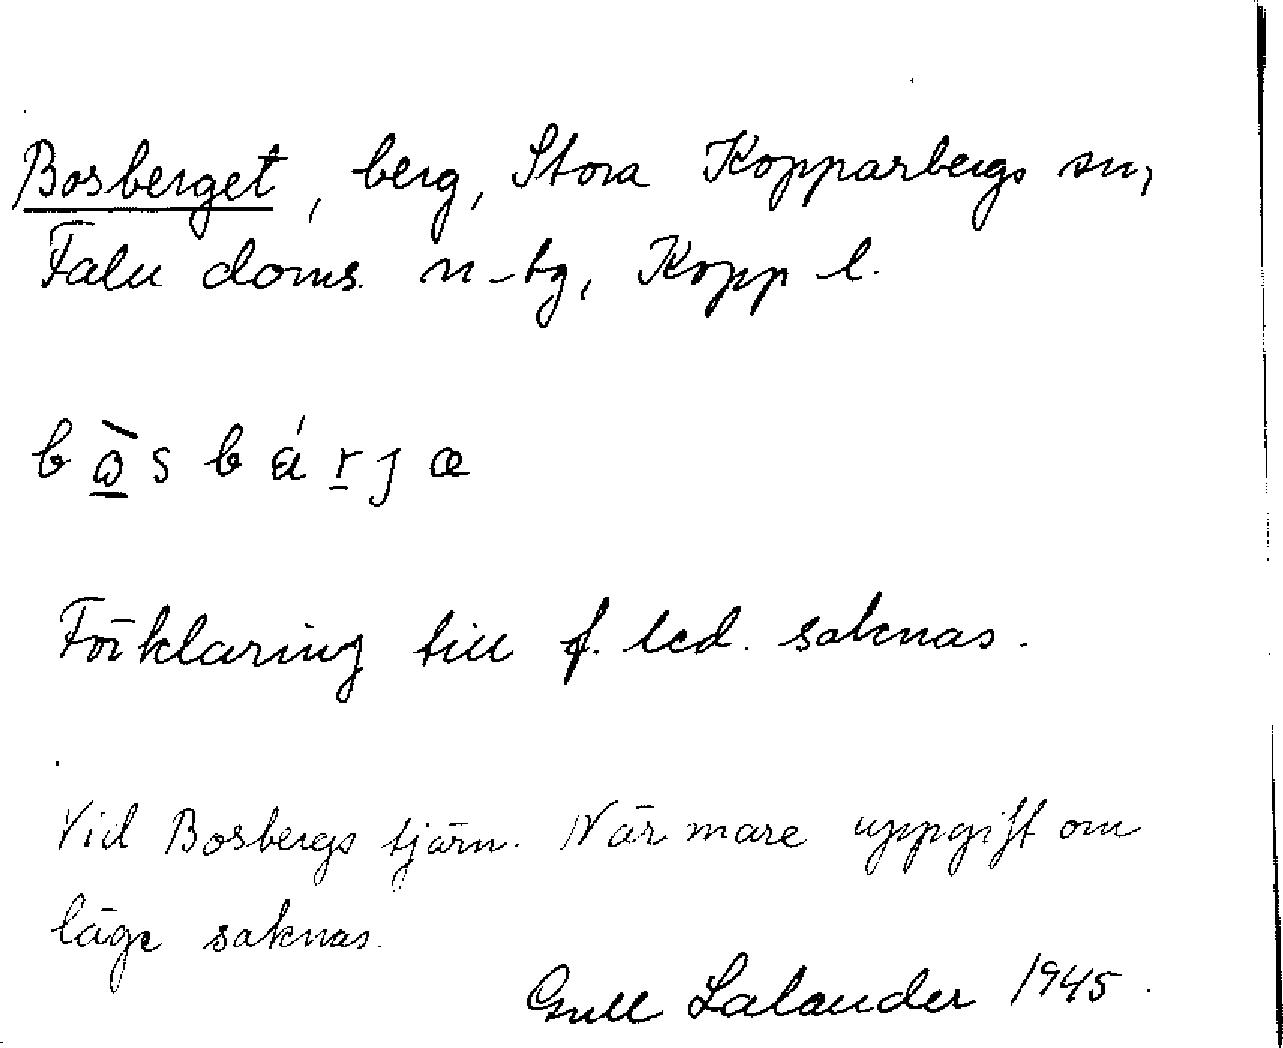 Bosberget, berg, Stora Kopparbergs sn,
Falu doms. n-tg, Kopp l.
bὼ̲sbár̲jæ
Förklaring till f. led. saknas.
Vid Bosbergs tjärn. Närmare uppgift om
läge saknas.
Gull Lalander 1945.